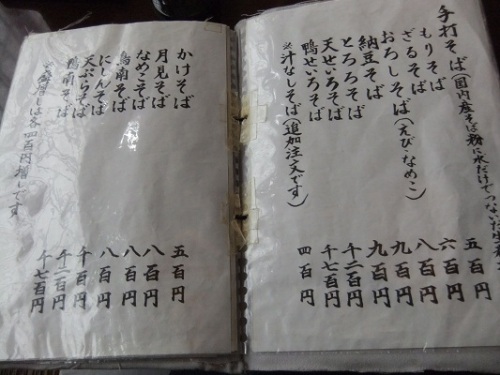 手打そば(国内産そば粉に水だけでつないだ生
もりそば 五百円
ざるそば 六百円
おろしそば(えび・なめこ) 八百円
納豆そば 九百円
とろろそば 九百円
天せいろそば 千二百円
鴨せいろそば 千七百円
※汁なしそば(追加注文です) 四百円
かけそば 五百円
月見そば 八百円
なめこそば 八百円
鳥南そば 八百円
にしんそば 千百円
天ぷらそば 千二百円
鴨南そば 千七百円
は各四百円増しです